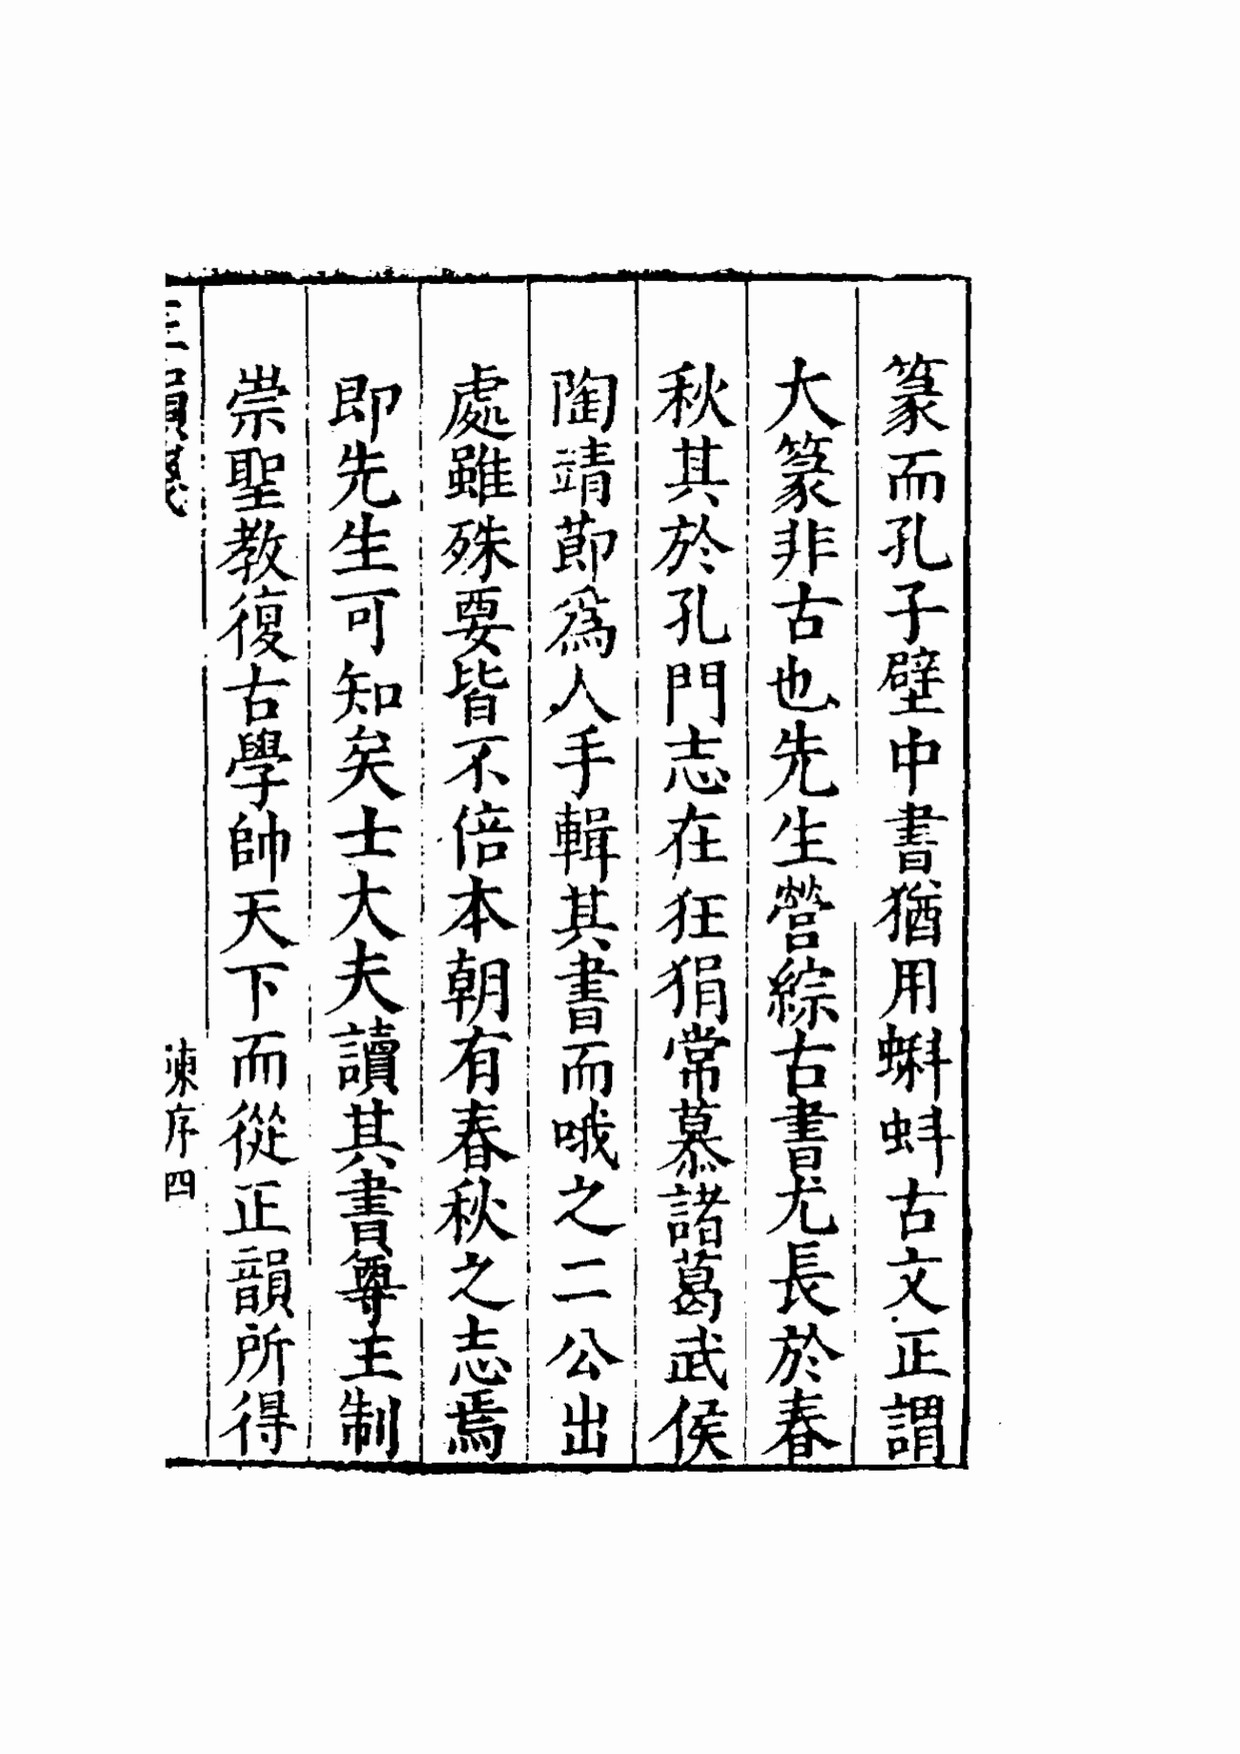 篆而孔子壁中書猶用蝌蚪古文正謂
大篆非古也先生營綜古書尤長於春
秋其於孔門志在狂狷常慕諸葛武侯
陶靖節爲人手輯其書而哦之二公出
處雖殊要皆不倍本朝有春秋之志焉
即先生可知矣士大夫讀其書尊王制
崇聖教復古學帥天下而從正韻所得
正韻箋
陳序四